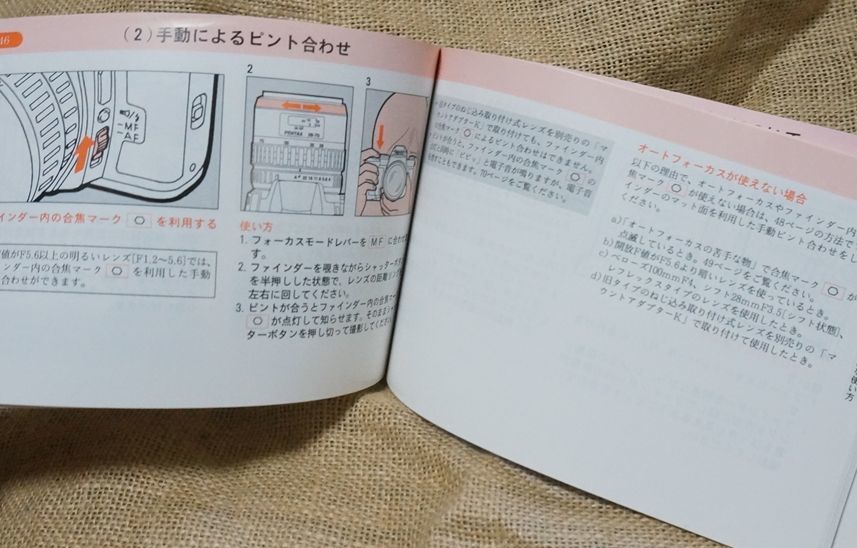 46
(2)手動によるピント合わせ
MF
AF
2
PENTAX
28-70
3
インダー内の合焦マーク を利用する
値がF5.6以上の明るいレンズ[F1.2〜5.6]では、
ンダー内の合焦マーク を利用した手動
合わせができます。
使い方
1. フォーカスモードレバーを MF に合わせ
す。
2. ファインダーを覗きながらシャッターボタ
を半押しした状態で、レンズの距離リング
左右に回してください。
3. ピントが合うとファインダー内の合焦マー
が点灯して知らせます。そのままシャ
ターボタンを押し切って撮影してくださ
旧タイプのねじ込み取り付け式レンズを別売りの「マ
ウントアダプターK」で取り付けても、ファインダー内
合焦マーク によるピント合わせはできません。
ピントが合うと、ファインダー内の合焦マーク の
点灯と同時に「ピピッ」と電子音が鳴りますが、電子音
を消すこともできます。70ページをご覧ください。
オートフォーカスが使えない場合
以下の理由で、オートフォーカスやファインダー内
焦マーク が使えない場合は、48ページの方法で
インダーのマット面を利用した手動ピント合わせをし
ください。
a)「オートフォーカスの苦手な物」で合焦マーク が
点滅しているとき。49ページをご覧ください。
b)開放F値がF5.6より暗いレンズを使っているとき。
c)ベローズ100mmF4、シフト28mmF3.5[シフト状態]、
レフレックスタイプのレンズを使用したとき。
d)旧タイプのねじ込み取り付け式レンズを別売りの「マ
ウントアダプターK」で取り付けて使用したとき。
使い方